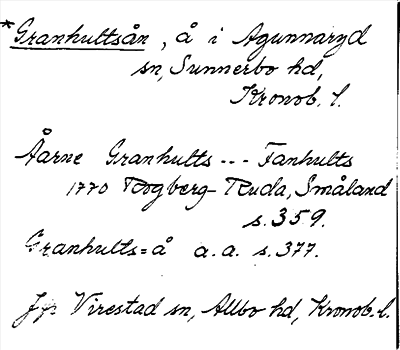 *Granhultsån, å i Agunnaryd
sn, Sunnerbo hd,
Kronob. l.
Åarne Granhults --- Fanhults
1770 Rogberg-Ruda, Småland
s. 359.
Granhults=å a.a. s. 377.
Jfr Virestad sn, Allbo hd, Kronob. l.